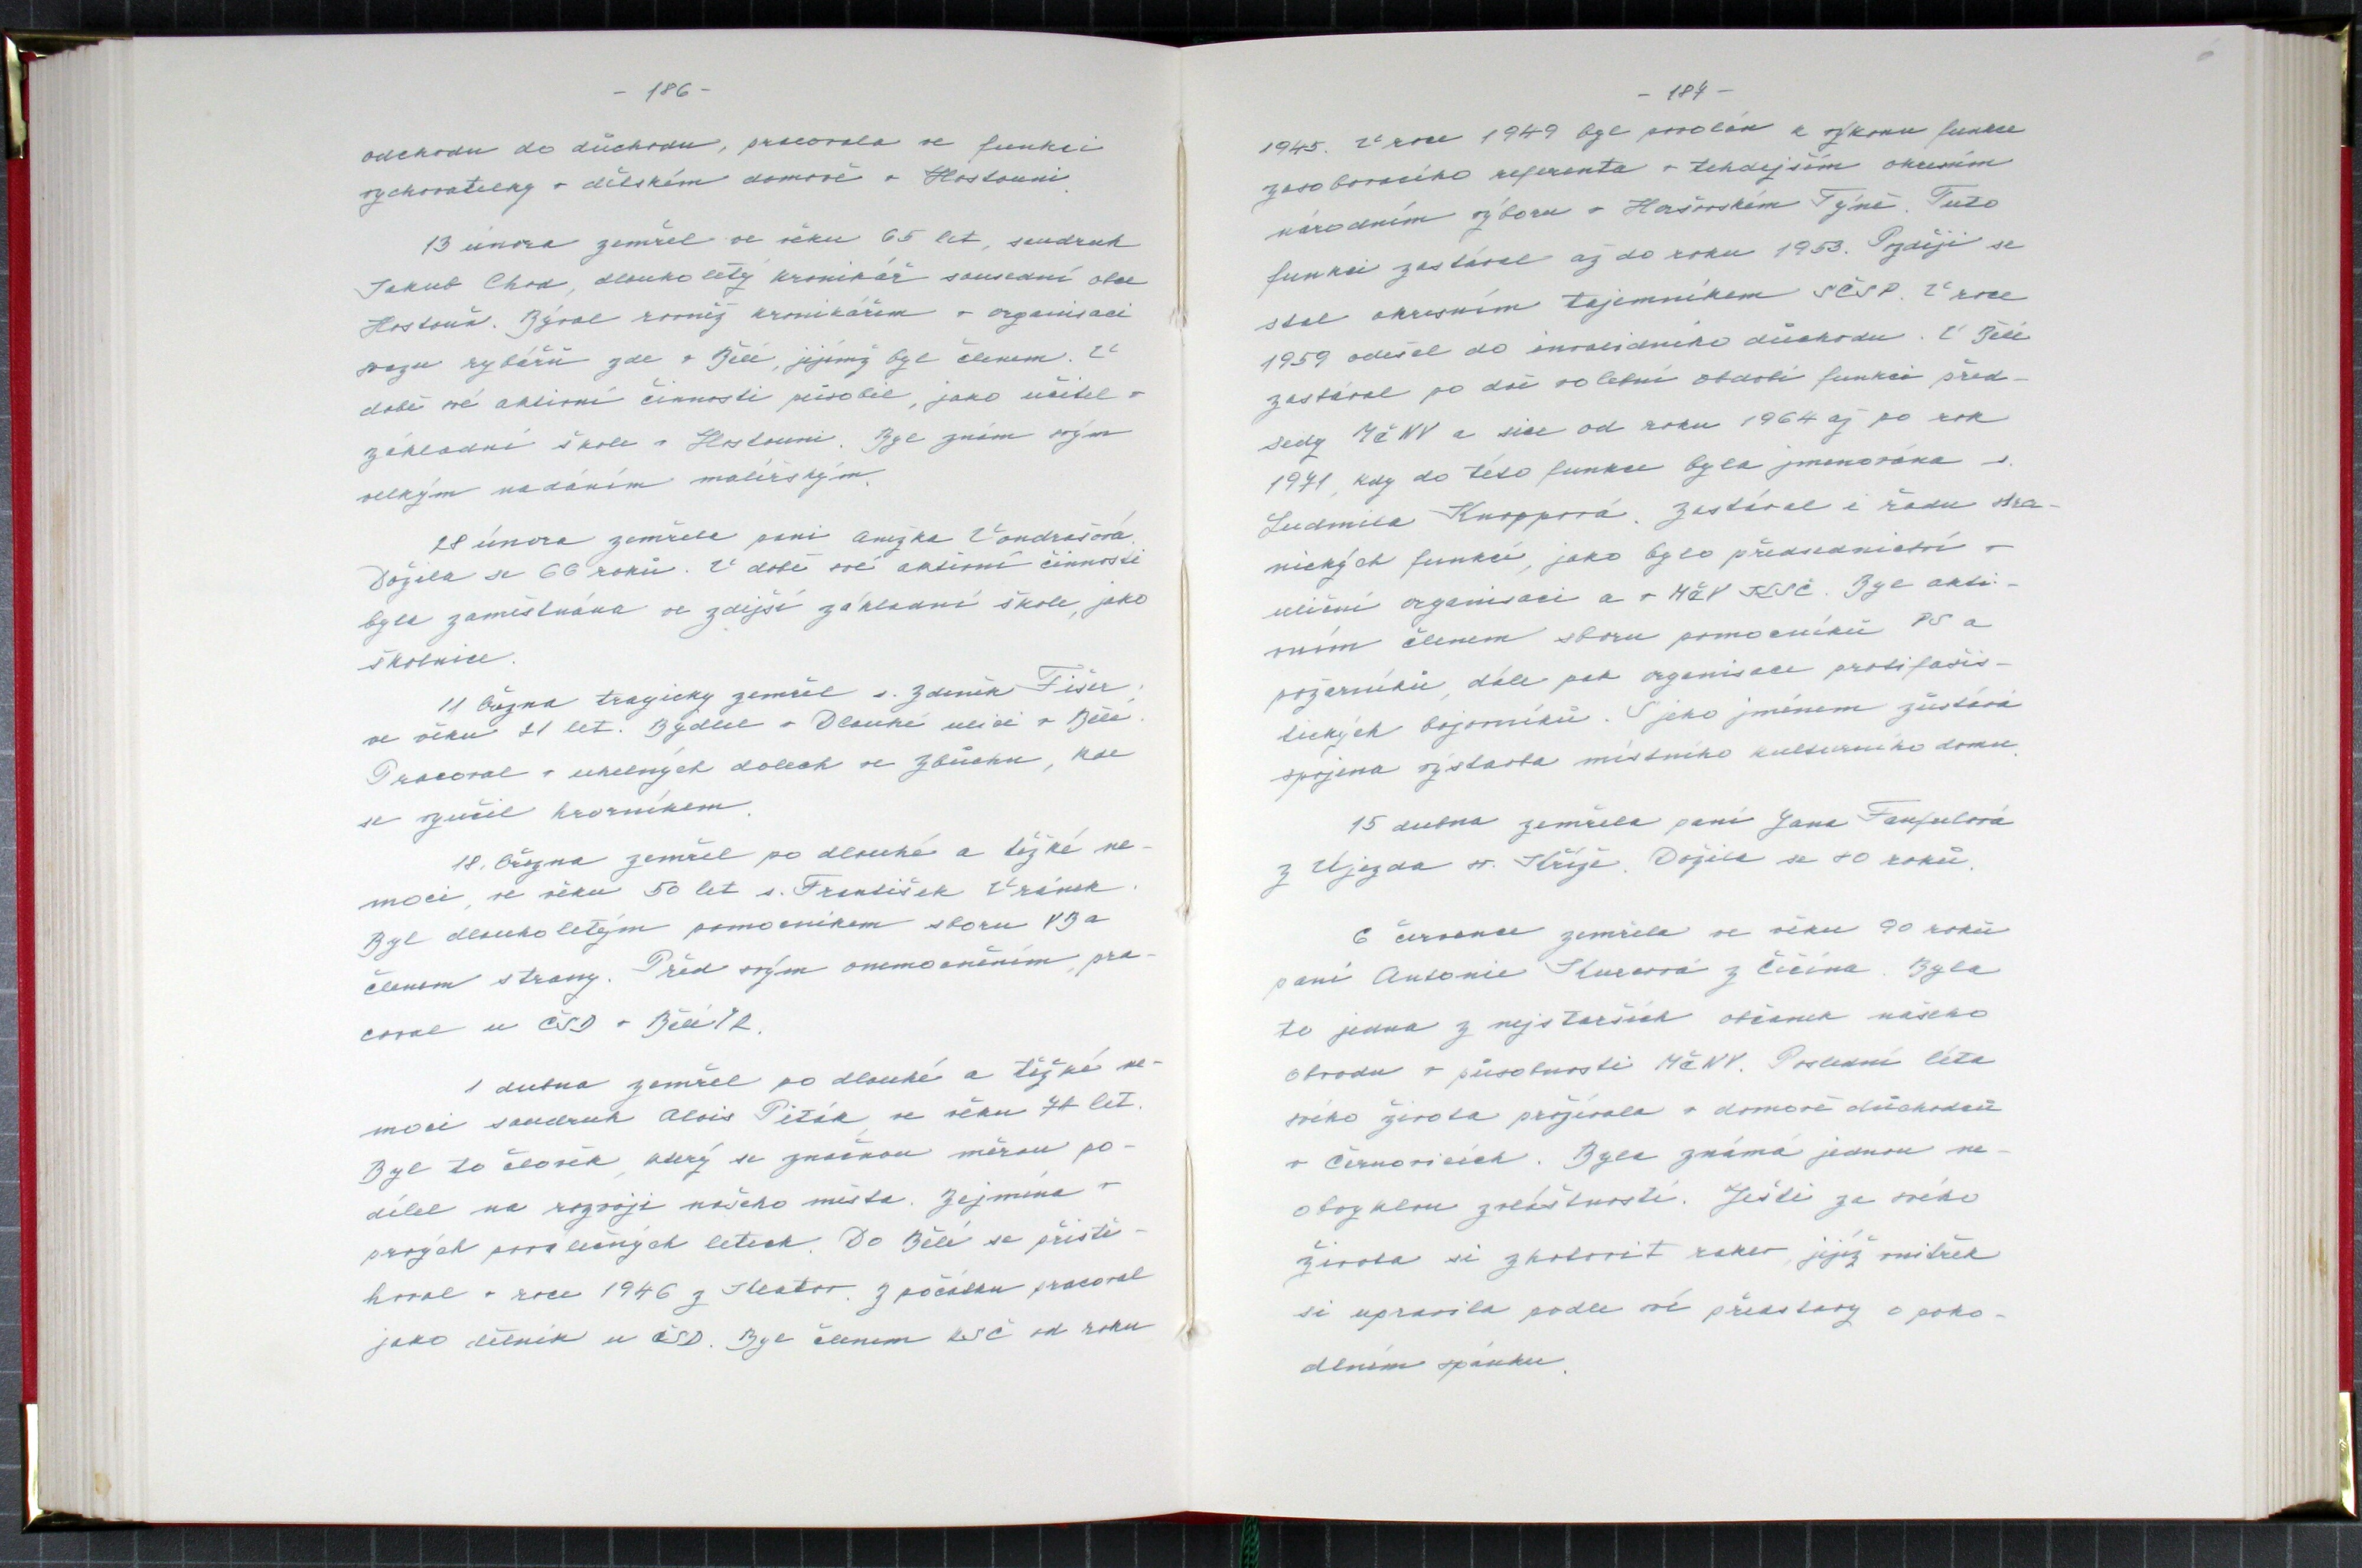 - 186 -
odchodu do důchodu, pracovala ve funkci
vychovatelky v dětském domově v Hostouni.
13 února zemřel ve věku 65 let, soudruh
Jakub Chod, dlouholetý kronikář sousední obce
Hostouň. Býval rovněž kronikářem v organisaci
svazu rybářů zde v Bělé, jejímž byl členem. V
době své aktivní činnosti působil, jako učitel v
základní škole v Hostouni. Byl znám svým
velkým nadáním malířským.
28 února zemřela paní Anežka Vondrašová.
Dožila se 66 roků. V době své aktivní činnosti
byla zaměstnána ve zdejší základní škole, jako
školnice.
11 března tragicky zemřel s. Zdeněk Fišer,
ve věku 21 let. Bydlel v Dlouhé ulici v Bělé.
Pracoval v uhelných dolech ve Zbůchu, kde
se vyučil horníkem.
18. března zemřel po dlouhé a těžké ne-
moci, ve věku 50 let s. František Vránek.
Byl dlouholetým pomocníkem sboru VB a
členem strany. Před svým onemocněním, pra-
coval u ČSD v Bělé
1 dubna zemřel po dlouhé a těžké ne-
moci soudruh Alois Piták, ve věku let.
Byl to člověk, který se značnou měrou po-
dílel na rozvoji našeho města. Zejména v
prvých poválečných letech. Do Bělé se přistě-
hoval v roce 1946 z Klatov. Z počátku pracoval
jako dělník u ČSD. Byl členem KSČ od roku
- 187 -
1945. V roce 1949 byl povolán k výkonu funkce
zásobovacího referenta v tehdejším okresním
národním výboru v Horšovském Týně. Tuto
funkci zastával až do roku 1953. Později se
stal okresním tajemníkem SČSP. V roce
1959 odešel do invalidního důchodu. V Bělé
zastával po dvě volební období funkci před-
sedy MěNV a sice od roku 1964 až po rok
1971, kdy do této funkce byla jmenována s.
Ludmila Knoppová. Zastával i řadu stra-
nických funkcí, jako bylo předsednictví v
uliční organisaci a v MěV KSČ. Byl akti-
vním členem sboru pomocníků PS a
požárníků, dále pak organisace protifašis-
tických bojovníků. S jeho jménem zůstává
spojena výstavba místního kulturního domu.
15 dubna zemřela paní Jana Fanfulová
z Újezda sv. Kříže. Dožila se 80 roků.
6 července zemřela ve věku 90 roků
paní Antonie Kurcová z Čečína. Byla
to jedna z nejstarších občanek našeho
obvodu v působnosti MěNV. Poslední léta
svého života prožívala v domově důchodců
v Černovicích. Byla známá jednou ne-
obvyklou zvláštností. Ještě za svého
života si zhotovit rakev, jejíž vnitřek
si upravila podle své představy o poho-
dlném spánku.